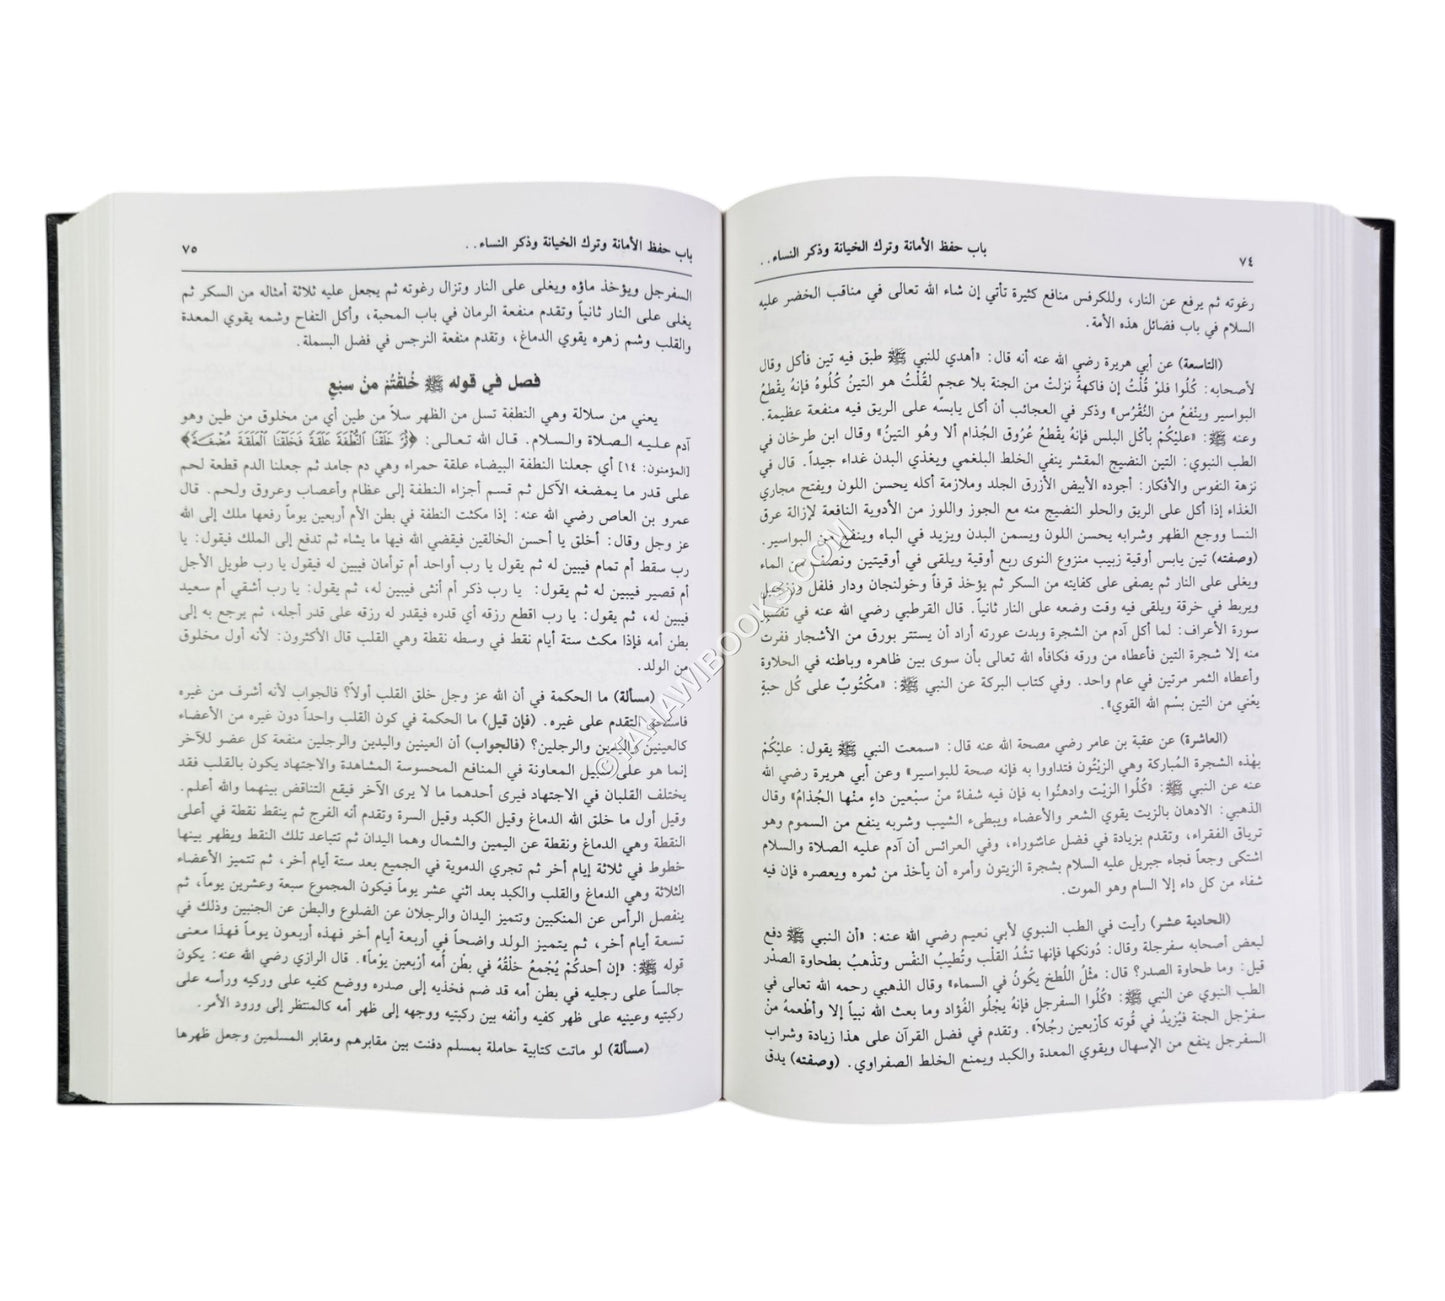 ٧٤ باب حفظ الأمانة وترك الخيانة وذكر النساء . .
رغوته ثم يرفع عن النار، وللكرفس منافع كثيرة تأتي إن شاء الله تعالى في مناقب الخضر عليه
السلام في باب فضائل هذه الأمة.
(التاسعة) عن أبي هريرة رضي الله عنه أنه قال: «أهدي للنبي ﷺ طبق فيه تين فأكل وقال
لأصحابه: كُلُوا فلوْ قُلْتُ إن فاكهةً نزلتْ من الجنة بلا عجم لقُلْتُ هو التينُ كُلُوهُ فإنهُ يقْطعُ
البواسير وينْفعُ من النُقْرُس» وذكر في العجائب أن أكل يابسه على الريق فيه منفعة عظيمة.
وعنه ﷺ: «عليْكُمْ بأكْل البلس فإنهُ يقْطعُ عرُوق الجُذام ألا وهُو التينُ» وقال ابن طرخان في
الطب النبوي: التين النضيج المقشر ينفي الخلط البلغمي ويغذي البدن غداء جيداً. قال في
نزهة النفوس والأفكار: أجوده الأبيض الأزرق الجلد وملازمة أكله يحسن اللون ويفتح مجاري
الغذاء إذا أكل على الريق والحلو النضيج منه مع الجوز واللوز من الأدوية النافعة لإزالة عرق
النسا ووجع الظهر وشرابه يحسن اللون ويسمن البدن ويزيد في الباه وينفع من البواسير.
(وصفته) تين يابس أوقية زبيب منزوع النوى ربع أوقية ويلقى في أوقيتين ونصف من الماء
ويغلى على النار ثم يصفى على كفايته من السكر ثم يؤخذ قرفاً وخولنجان ودار فلفل وزنجبيل
ويربط في خرقة ويلقى فيه وقت وضعه على النار ثانياً. قال القرطبي رضي الله عنه في تفسير
سورة الأعراف: لما أكل آدم من الشجرة وبدت عورته أراد أن يستتر بورق من الأشجار ففرت
منه إلا شجرة التين فأعطاه من ورقه فكافأه الله تعالى بأن سوى بين ظاهره وباطنه في الحلاوة
وأعطاه الثمر مرتين في عام واحد. وفي كتاب البركة عن النبي ﷺ: «مكْتُوبٌ على كُل حبةٍ
يعْني من التين بسْم الله القوي».
(العاشرة) عن عقبة بن عامر رضي مصحة الله عنه قال: «سمعت النبي ﷺ يقول: عليْكُمْ
بهْذه الشجرة المُباركة وهي الزيْتُون فتداووا به فإنه صحة للبواسير» وعن أبي هريرة رضي الله
عنه عن النبي ﷺ: «كُلُوا الزيْت وادهنُوا به فإن فيه شفاءً منْ سبْعين داءٍ منْها الجُذامُ» وقال
الذهبي: الادهان بالزيت يقوي الشعر والأعضاء ويبطىء الشيب وشربه ينفع من السموم وهو
ترياق الفقراء، وتقدم بزيادة في فضل عاشوراء، وفي العرائس أن آدم عليه الصلاة والسلام
اشتكى وجعاً فجاء جبريل عليه السلام بشجرة الزيتون وأمره أن يأخذ من ثمره ويعصره فإن فيه
شفاء من كل داء إلا السام وهو الموت.
(الحادية عشر) رأيت في الطب النبوي لأبي نعيم رضي الله عنه: «أن النبي ﷺ دفع
لبعض أصحابه سفرجلة وقال: دُونكها فإنها تشُدُ القلْب وتُطيبُ النفْس وتذْهبُ بطحاوة الصدْر
قيل: وما طحاوة الصدر؟ قال: مثْلُ اللُطخ يكُونُ في السماء» وقال الذهبي رحمه الله تعالى في
الطب النبوي عن النبي ﷺ: «كُلُوا السفرجل فإنهُ يجْلُو الفُؤاد وما بعث الله نبياً إلا وأطْعمهُ منْ
سفرْجل الجنة فيُزيدُ في قُوته كأرْبعين رجُلاً». وتقدم في فضل القرآن على هذا زيادة وشراب
السفرجل ينفع من الإسهال ويقوي المعدة والكبد ويمنع الخلط الصفراوي. (وصفته) يدق
باب حفظ الأمانة وترك الخيانة وذكر النساء . . ٧٥
السفرجل ويؤخذ ماؤه ويغلى على النار وتزال رغوته ثم يجعل عليه ثلاثة أمثاله من السكر ثم
يغلى على النار ثانياً وتقدم منفعة الرمان في باب المحبة، وأكل التفاح وشمه يقوي المعدة
والقلب وشم زهره يقوي الدماغ، وتقدم منفعة النرجس في فضل البسملة.
فصل في قوله ﷺ خُلقْتُمْ منْ سبْع
يعني من سلالة وهي النطفة تسل من الظهر سلاً من طين أي من مخلوق من طين وهو
آدم عليه الصلاة والسلام. قال الله تعالى: ﴿ثُمَّ خَلَقْنَا النُّطْفَةَ عَلَقَةً فَخَلَقْنَا الْعَلَقَةَ مُضْغَةً﴾
[المؤمنون: ١٤] أي جعلنا النطفة البيضاء علقة حمراء وهي دم جامد ثم جعلنا الدم قطعة لحم
على قدر ما يمضغه الآكل ثم قسم أجزاء النطفة إلى عظام وأعصاب وعروق ولحم. قال
عمرو بن العاص رضي الله عنه: إذا مكثت النطفة في بطن الأم أربعين يوماً رفعها ملك إلى الله
عز وجل وقال: أخلق يا أحسن الخالقين فيقضي الله فيها ما يشاء ثم تدفع إلى الملك فيقول: يا
رب سقط أم تمام فيبين له ثم يقول يا رب أواحد أم توأمان فيبين له فيقول يا رب طويل الأجل
أم قصير فيبين له ثم يقول: يا رب ذكر أم أنثى فيبين له، ثم يقول: يا رب أشقي أم سعيد
فيبين له، ثم يقول: يا رب اقطع رزقه أي قدره فيقدر له رزقه على قدر أجله، ثم يرجع به إلى
بطن أمه فإذا مكث ستة أيام نقط في وسطه نقطة وهي القلب قال الأكثرون: لأنه أول مخلوق
من الولد.
(مسألة) ما الحكمة في أن الله عز وجل خلق القلب أولاً؟ فالجواب لأنه أشرف من غيره
فاستحق التقدم على غيره. (فإن قيل) ما الحكمة في كون القلب واحداً دون غيره من الأعضاء
كالعينين واليدين والرجلين؟ (فالجواب) أن العينين واليدين والرجلين منفعة كل عضو للآخر
إنما هو على سبيل المعاونة في المنافع المحسوسة المشاهدة والاجتهاد يكون بالقلب فقد
يختلف القلبان في الاجتهاد فيرى أحدهما ما لا يرى الآخر فيقع التناقض بينهما والله أعلم.
وقيل أول ما خلق الله الدماغ وقيل الكبد وقيل السرة وتقدم أنه الفرج ثم ينقط نقطة في أعلى
النقطة وهي الدماغ ونقطة عن اليمين والشمال وهما اليدان ثم تتباعد تلك النقط ويظهر بينها
خطوط في ثلاثة إيام أخر ثم تجري الدموية في الجميع بعد ستة أيام أخر، ثم تتميز الأعضاء
الثلاثة وهي الدماغ والقلب والكبد بعد اثني عشر يوماً فيكون المجموع سبعة وعشرين يوماً، ثم
ينفصل الرأس عن المنكبين وتتميز اليدان والرجلان عن الضلوع والبطن عن الجنبين وذلك في
تسعة أيام أخر، ثم يتميز الولد واضحاً في أربعة أيام أخر فهذه أربعون يوماً فهذا معنى
قوله ﷺ: «إن أحدكُمْ يُجْمعُ خلْقُهُ في بطْن أُمه أرْبعين يوْماً». قال الرازي رضي الله عنه: يكون
جالساً على رجليه في بطن أمه قد ضم فخذيه إلى صدره ووضع كفيه على وركيه ورأسه على
ركبتيه وعينيه على ظهر كفيه وأنفه بين ركبتيه ووجهه إلى ظهر أمه كالمنتظر إلى ورود الأمر.
(مسألة) لو ماتت كتابية حاملة بمسلم دفنت بين مقابرهم ومقابر المسلمين وجعل ظهرها
©JANAWIBOOKS.COM